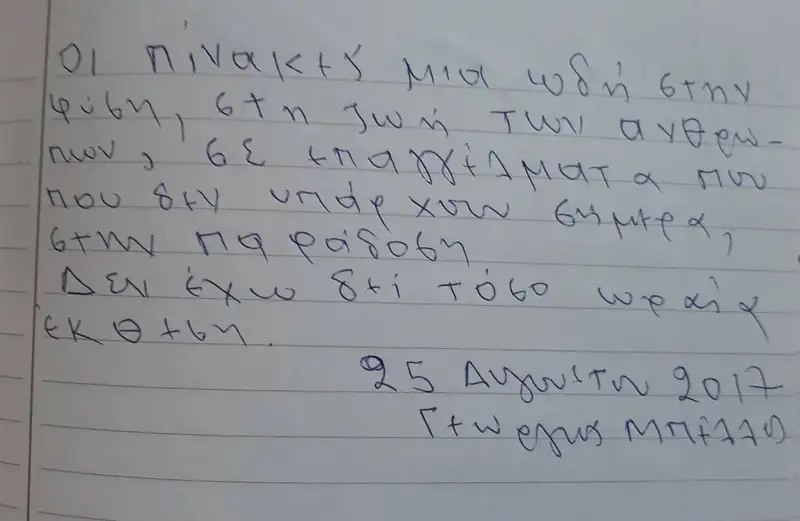 Οι πίνακες μια ωδή στην
φύση, στη ζωή των ανθρώ-
πων, σε επαγγέλματα που
που δεν υπάρχουν σήμερα,
στην παράδοση
Δεν έχω δεί τόσο ωραία
έκθεση.
25 Αυγούστου 2017
Γεώργιος Μπέλλος